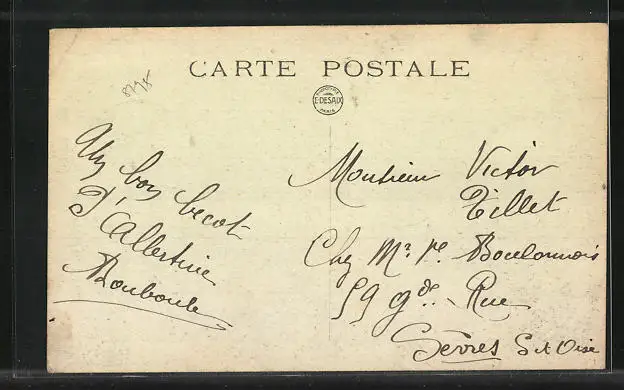 CARTE POSTALE
E. DESAIX
PARIS
Un bon becot
D'Albertine
Bouboule
Monsieur Victor
Tillet
Chez Mr. Ve. Boulonnois
59 gde. Rue
Sèvres S et Oise